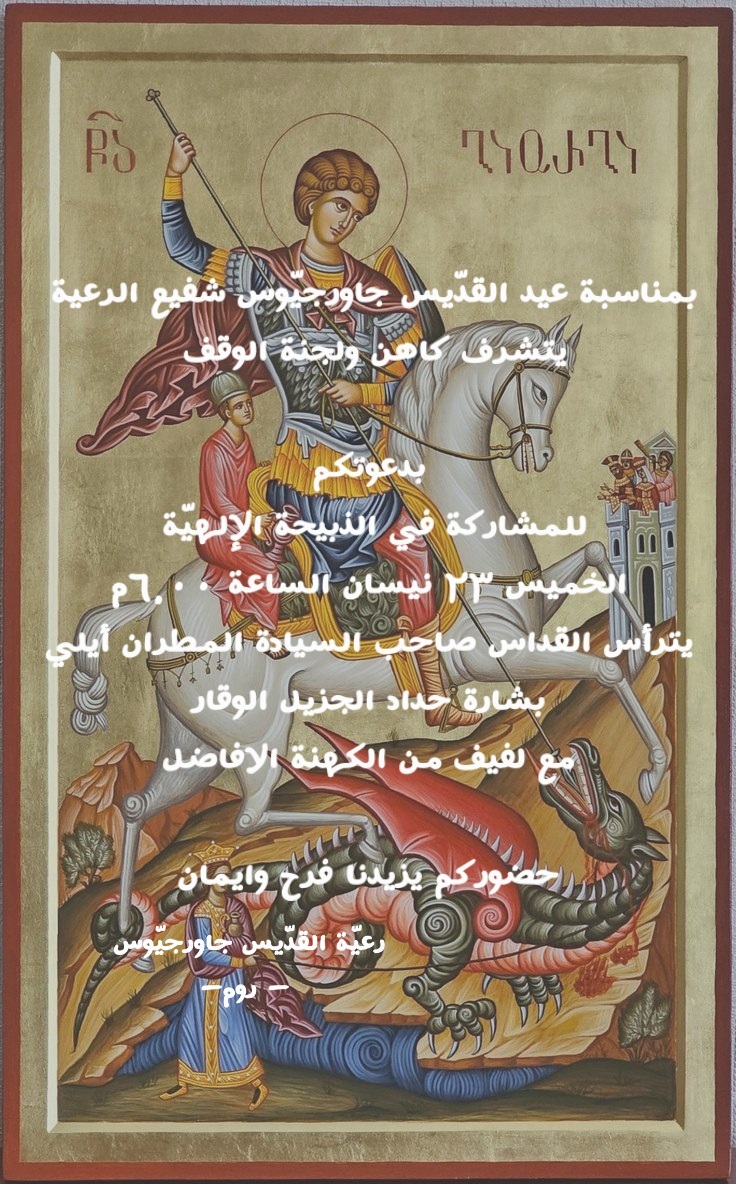 بمناسبة عيد القدّيس جاورجيّوس شفيع الرعية
يتشرف كاهن ولجنة الوقف
بدعوتكم
للمشاركة في الذبيحة الإلهيّة
الخميس ٢٣ نيسان الساعة ٦.٠٠م
يترأس القداس صاحب السيادة المطران أيلي
بشارة حداد الجزيل الوقار
مع لفيف من الكهنة الافاضل
حضوركم يزيدنا فرح وايمان
رعيّة القدّيس جاورجيّوس
– روم–